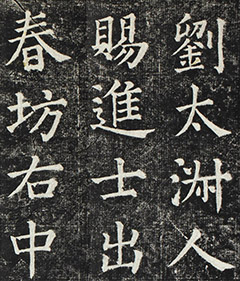 劉太淑人
賜進士出
春坊右中